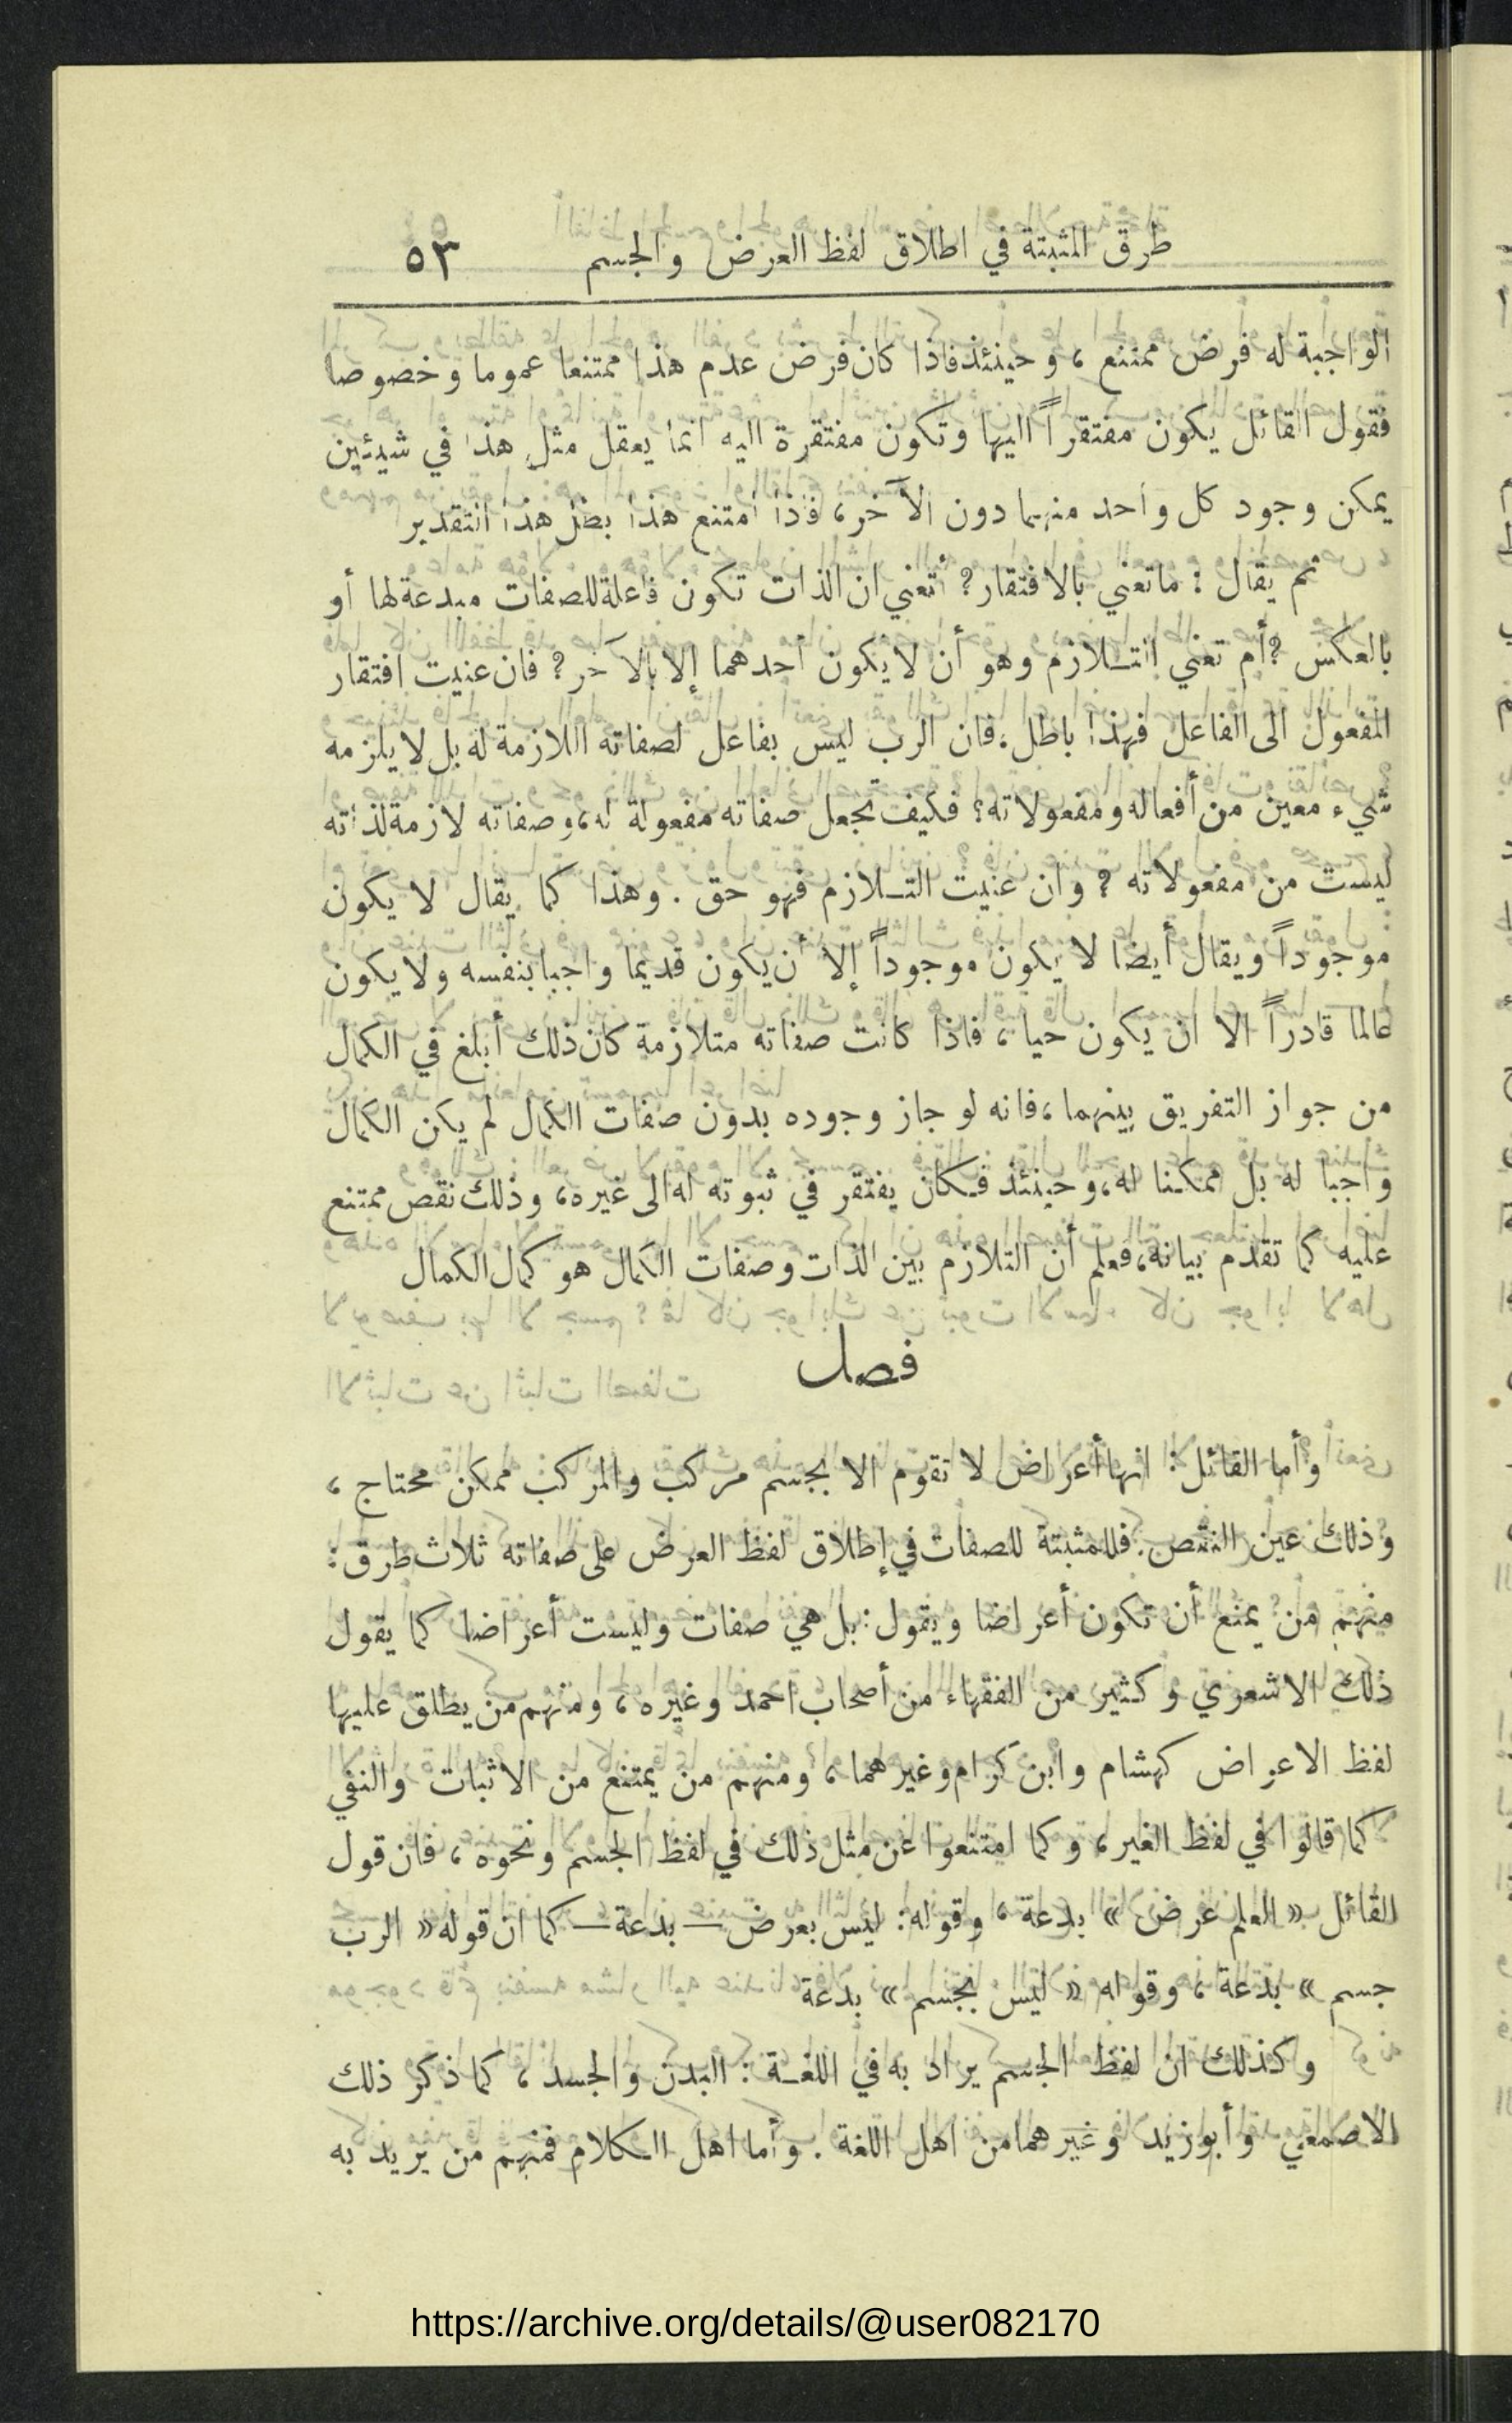 طرق المثبتة في اطلاق لفظ العرض والجسم ٥٣
الواجبة له فرض ممتنع ، وحينئذ فاذا كان فرض عدم هذا ممتنعا عموما وخصوصا
فقول القائل يكون مفتقراً اليها وتكون مفتقرة اليه انما يعقل مثل هذا في شيئين
يمكن وجود كل واحد منهما دون الآخر، فاذا امتنع هذا بطل هذا التقدير
ثم يقال : ما تعني بالافتقار ؟ أتعني ان الذات تكون فاعلة للصفات مبدعة لها أو
بالعكس ؟ أم تعني التـلازم وهو أن لا يكون احدهما إلا بالآخر ؟ فان عنيت افتقار
المفعول الى الفاعل فهذا باطل . فان الرب ليس بفاعل لصفاته اللازمة له بل لا يلزمه
شيء معين من أفعاله ومفعولاته ؟ فكيف تجعل صفاته مفعولة له ، وصفاته لازمة لذاته
ليست من مفعولاته ؟ وان عنيت التـلازم فهو حق . وهذا كما يقال لا يكون
موجوداً ويقال أيضا لا يكون موجوداً إلا أن يكون قديما واجبا بنفسه ولا يكون
عالما قادراً الا ان يكون حيا ، فاذا كانت صفاته متلازمة كان ذلك أبلغ في الكمال
من جواز التفريق بينهما ، فانه لو جاز وجوده بدون صفات الكمال لم يكن الكمال
واجبا له بل ممكنا له ، وحينئذ فكان يفتقر في ثبوته له الى غيره ، وذلك نقص ممتنع
عليه كما تقدم بيانه ، فعلم أن التلازم بين الذات وصفات الكمال هو كمال الكمال
فصل
وأما القائل : انها أعراض لا تقوم الا بجسم مركب والمركب ممكن محتاج ،
وذلك عين النقص . فللمثبتة للصفات في إطلاق لفظ العرض على صفاته ثلاث طرق :
منهم من يمنع أن تكون أعراضا ويقول : بل هي صفات وليست أعراضا كما يقول
ذلك الاشعري وكثير من الفقهاء من أصحاب احمد وغيره ، ومنهم من يطلق عليها
لفظ الاعراض كهشام وابن كرام وغيرهما ، ومنهم من يمتنع من الاثبات والنفي
كما قالوا في لفظ الغير ، وكما امتنعوا عن مثل ذلك في لفظ الجسم ونحوه ، فان قول
القائل « العلم عرض » بدعة ، وقوله : ليس بعرض — بدعة — كما ان قوله « الرب
جسم » بدعة ، وقوله « ليس بجسم » بدعة
وكذلك ان لفظ الجسم يراد به في اللغـة : البدن والجسد ، كما ذكر ذلك
الاصمعي وأبو زيد وغيرهما من اهل اللغة . وأما اهل الكلام فمنهم من يريد به
https://archive.org/details/@user082170